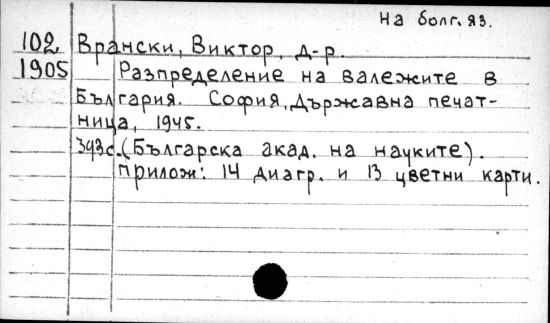 На болг. яз.
102 Врански, Виктор, д-р.
1905 Разпределение на валежите в
България. София, Държавна печат-
ница, 1945.
393 с. (Българска акад. на науките).
Прилож: 14 диагр. и 13 цветни карти.